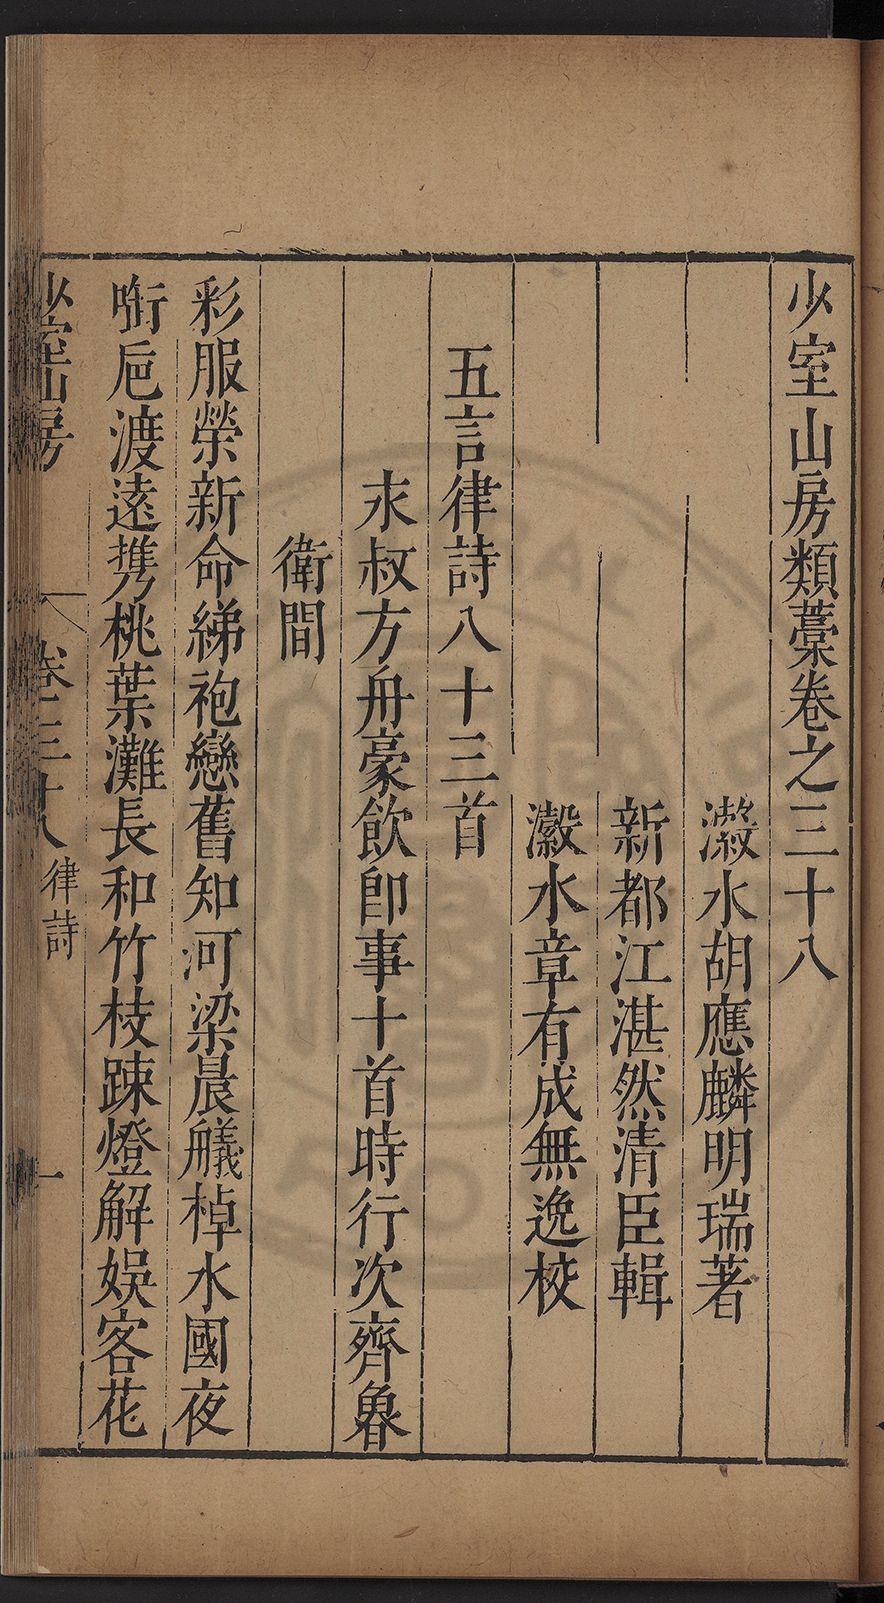 少室山房類藁卷之三十八
瀫水胡應麟明瑞著
新都江湛然清臣輯
瀫水章有成無逸校
五言律詩八十三首
永叔方舟豪飲即事十首時行次齊魯
衛間
彩服榮新命綈袍戀舊知河梁晨艤棹水國夜
銜巵渡遠擕桃葉灘長和竹枝踈燈解娛客花
少室山房 卷三十八 律詩 一